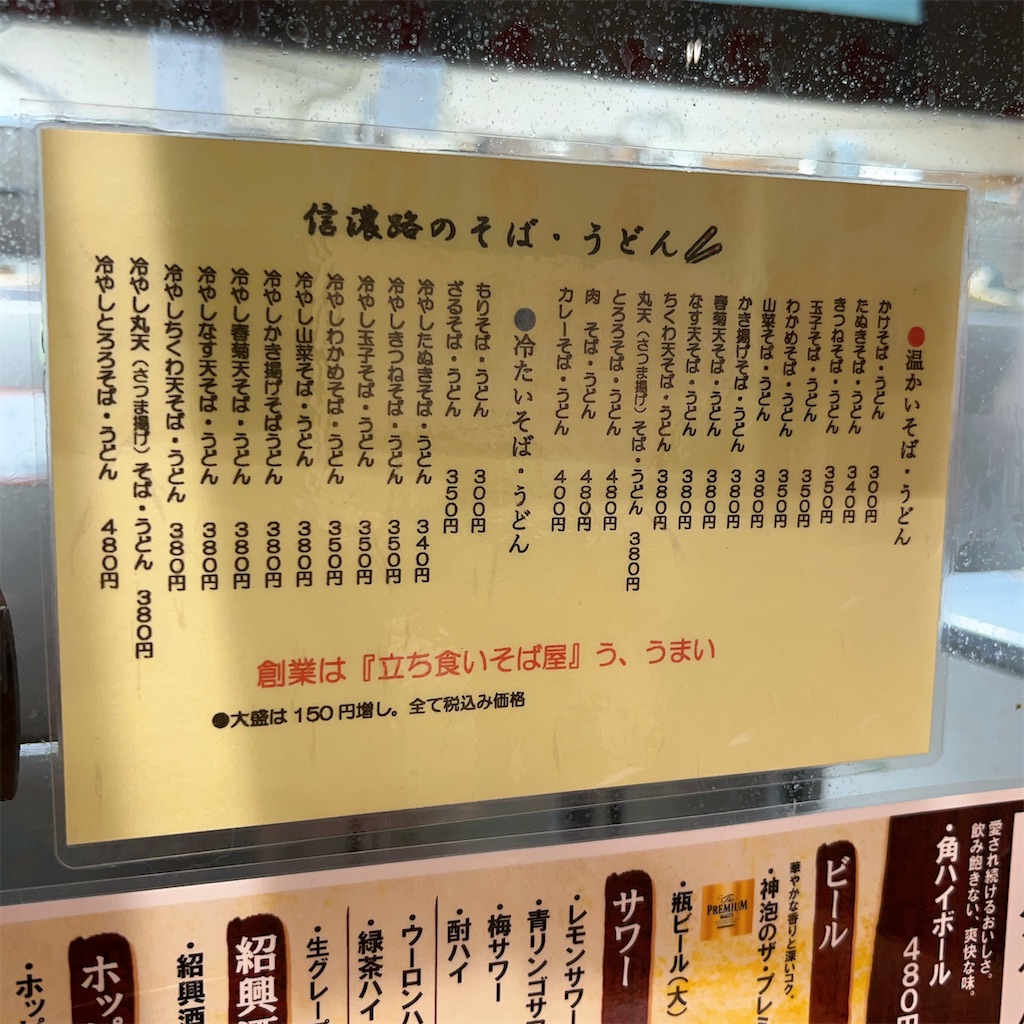 信濃路のそば・うどん
●温かいそば・うどん
かけそば・うどん 300円
たぬきそば・うどん 340円
きつねそば・うどん 350円
玉子そば・うどん 350円
わかめそば・うどん 350円
山菜そば・うどん 380円
かき揚げそば・うどん 380円
春菊天そば・うどん 380円
なす天そば・うどん 380円
ちくわ天そば・うどん 380円
丸天(さつま揚げ)そば・うどん 380円
とろろそば・うどん 480円
肉 そば・うどん 480円
カレーそば・うどん 400円
●冷たいそば・うどん
もりそば・うどん 300円
ざるそば・うどん 350円
冷やしたぬきそば・うどん 340円
冷やしきつねそば・うどん 350円
冷やし玉子そば・うどん 350円
冷やしわかめそば・うどん 350円
冷やし山菜そば・うどん 380円
冷やしかき揚げそばうどん 380円
冷やし春菊天そば・うどん 380円
冷やしなす天そば・うどん 380円
冷やしちくわ天そば・うどん 380円
冷やし丸天(さつま揚げ)そば・うどん 380円
冷やしとろろそば・うどん 480円
創業は『立ち食いそば屋』う、うまい
●大盛は150円増し。全て税込み価格
愛され続けるおいしさ。
飲み飽きない、爽快な味。
・角ハイボール 480円
ビール
華やかな香りと深いコク。
・神泡のザ・プレミ
The PREMIUM MALT'S
・瓶ビール(大)
サワー
・レモンサワー
・青リンゴサワ
・梅サワー
・酎ハイ
・ウーロンハ
・緑茶ハイ
・生グレープ
紹興酒
・紹興酒
ホッピ
・ホッピ